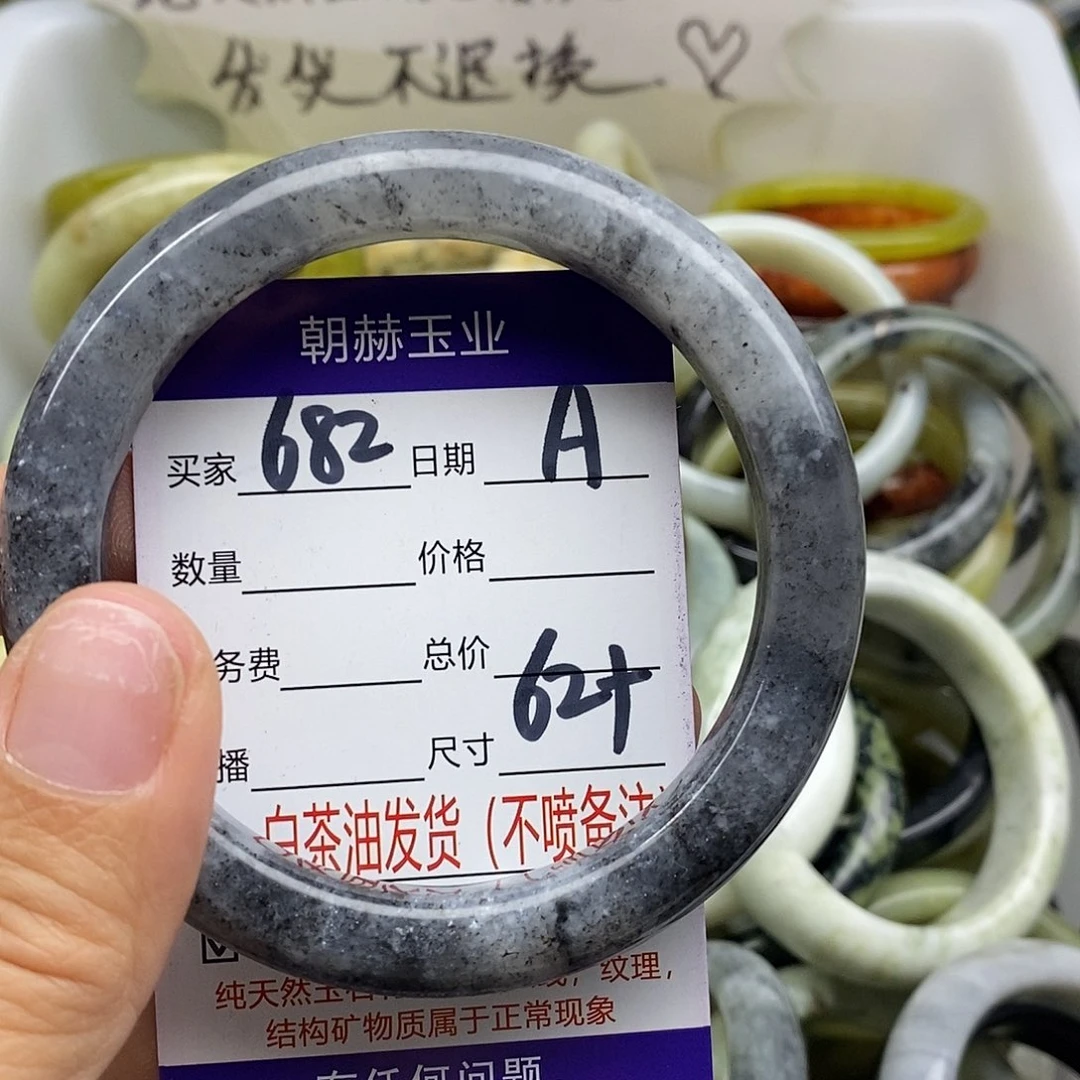 不退换
朝赫玉业
买家 682 日期 A
数量 价格
务费 总价
播 尺寸 62+
白茶油发货（不喷备注）
纹理，
纯天然玉石
结构矿物质属于正常现象
有任何问题